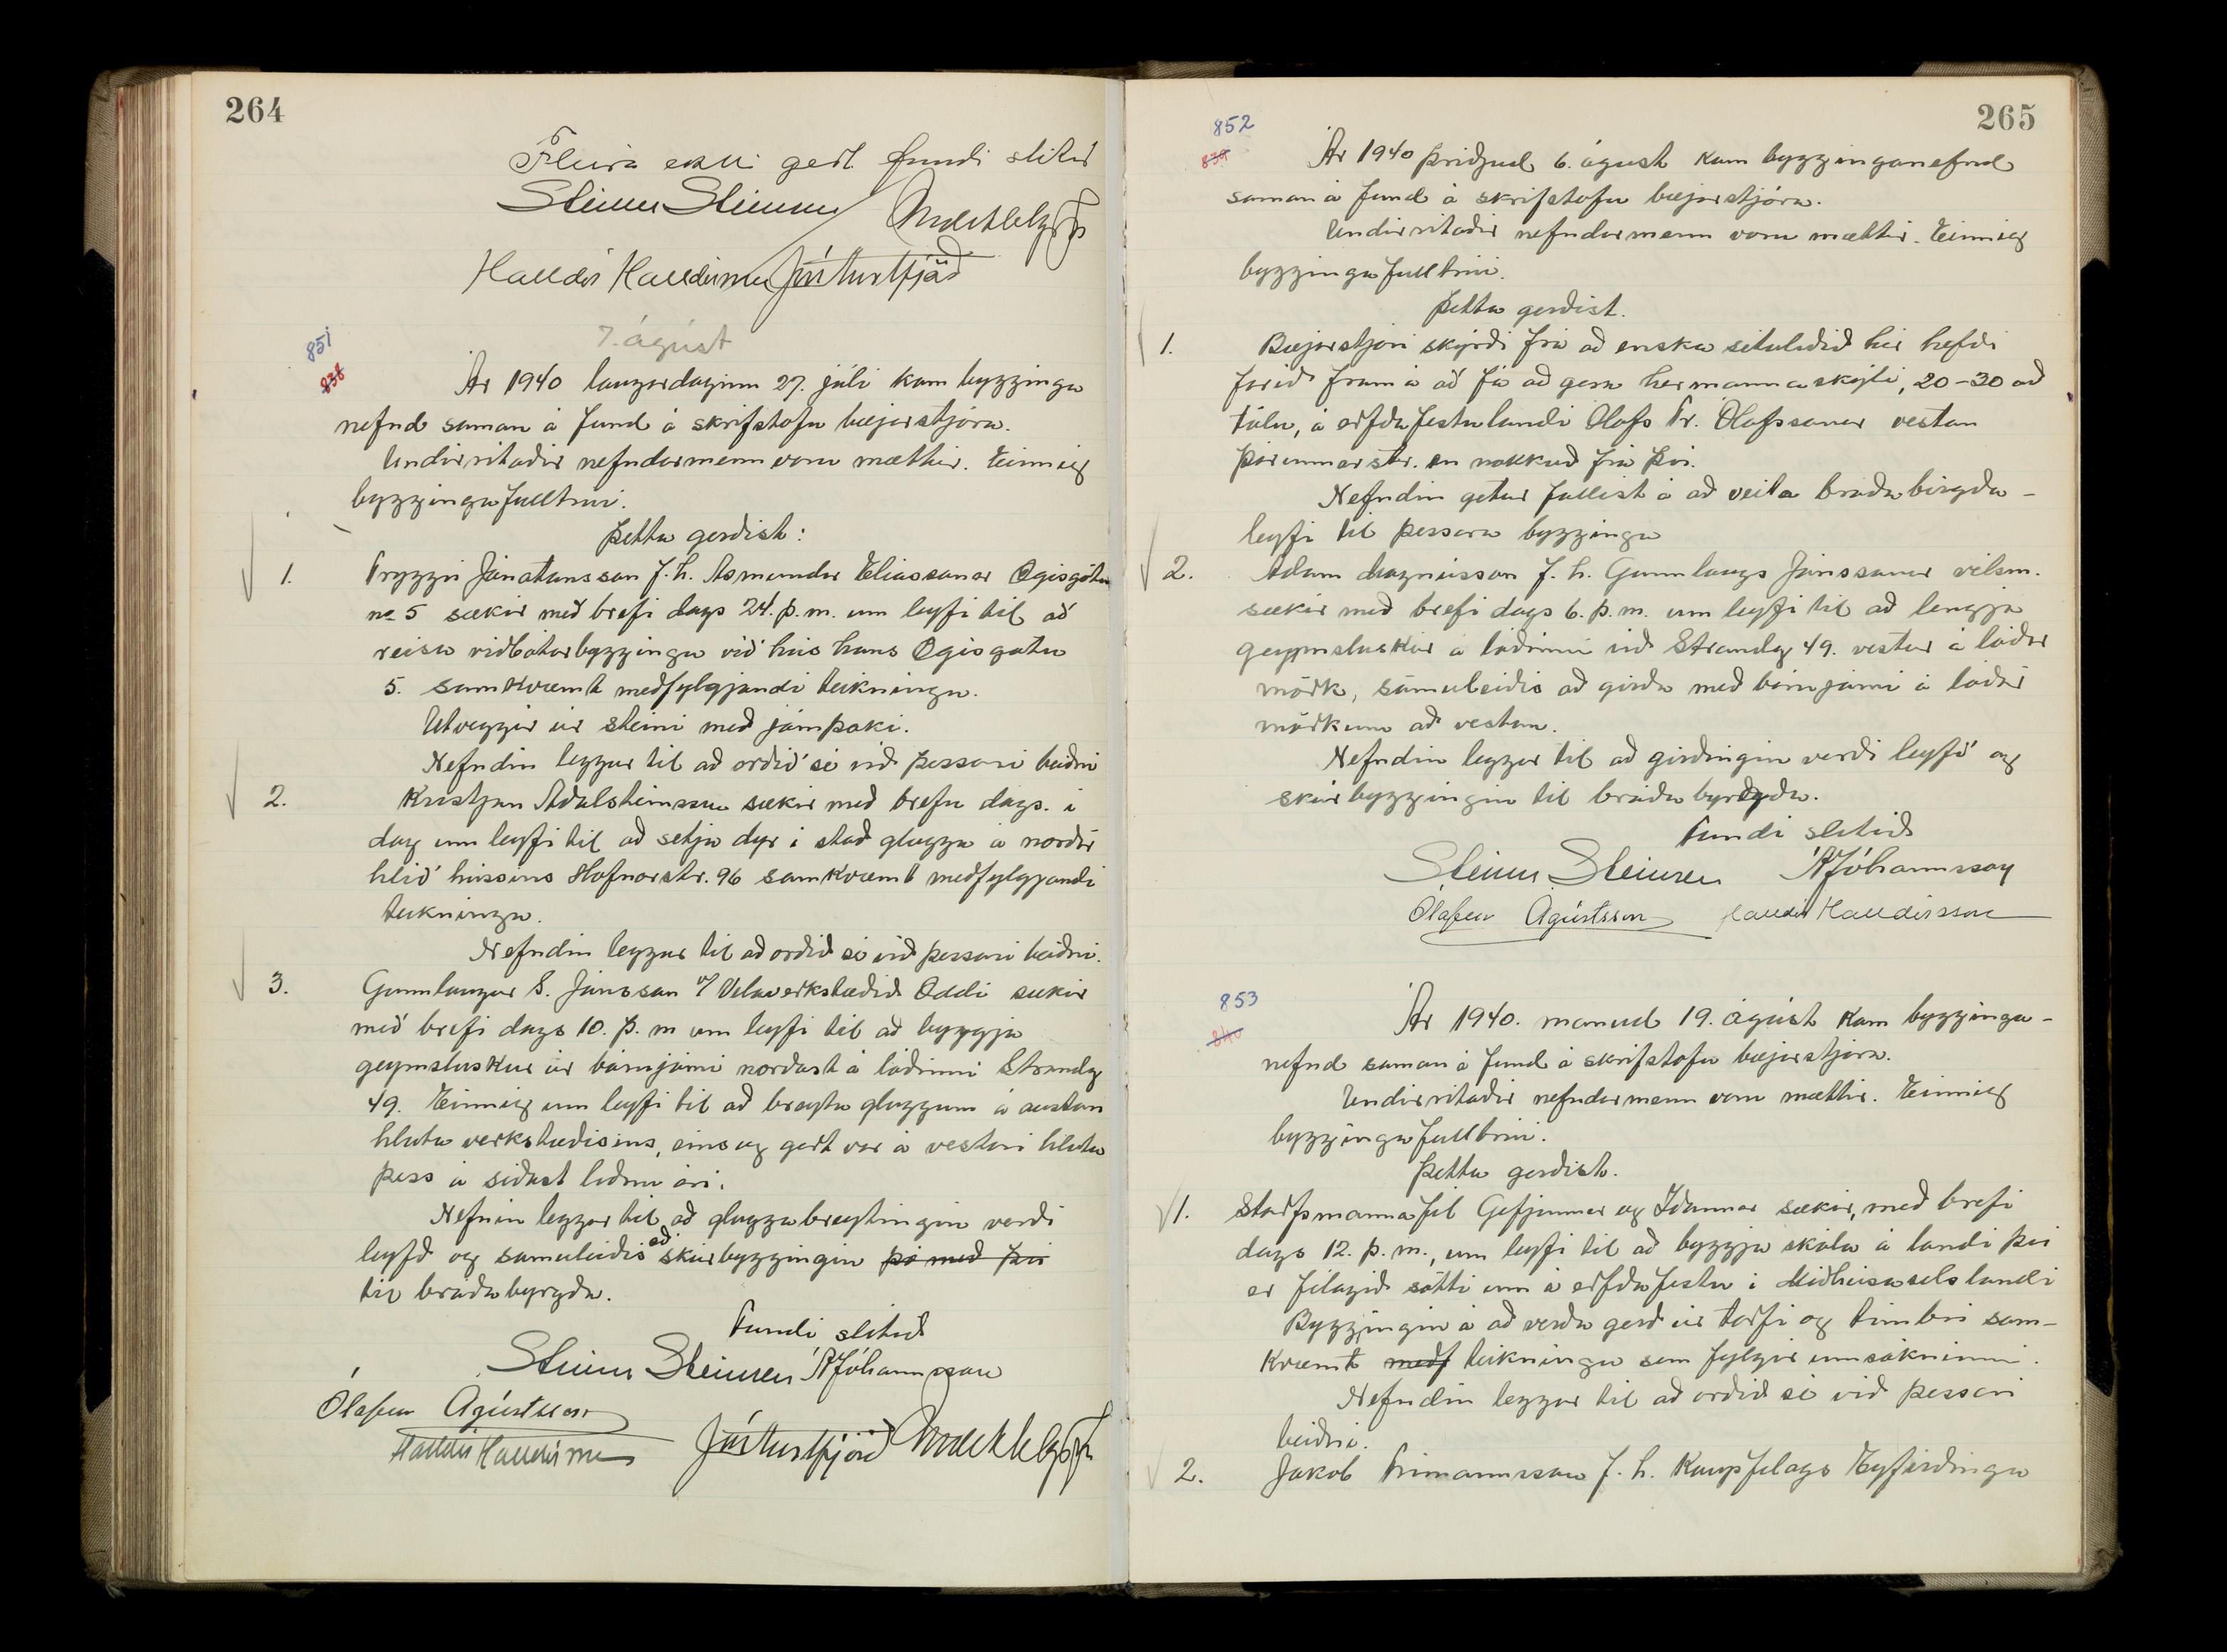 264
Fleira ekki gert fundi slitið
Steinn Steinsen
Halldór Halldórsson
851
838
7. ágúst
Ár 1940 laugardaginn 27. júli kom bygginga
nefnd saman á fund á skrifstofu bæjarstjóra.
Undirritaðir nefndarmenn voru mættir. Einnig
byggingafulltrúi.
Þetta gerðist:
1. Tryggvi Jónatansson f. h. Ásmundar Elíassonar Ægisgötu
no 5 sækir með brefi dags 24. þ. m. um leyfi til að
reisa viðbótarbyggingu við hús hans Ægisgötu
5. samkvæmt meðfylgjandi teikningu.
Útveggir úr steini með járnþaki.
Nefndin leggur til að orðið sé við þessari beiðni
2. Kristján Aðalsteinsson sækir með brefu dags. í
dag um leyfi til að setja dyr í stað glugga á norður
hlið hússins Hafnarstr. 96 samkvæmt meðfylgjandi
teikningu.
Nefndin leggur til að orðið sé við þessari beiðni.
3. Gunnlaugur S. Jónsson v/ Vélaverkstæðið Oddi sækir
með brefi dags 10. þ. m um leyfi til að byggja
geymsluskúr úr bárujárni norðast á lóðinni Strandg
49. Einnig um leyfi til að breyta gluggum á austur
hluta verkstæðisins, eins og gert var á vestari hluta
þess á síðast liðnu ári.
Nefnin leggur til að gluggabreytingin verði
leyfð og sömuleiðis að skúrbyggingin þó með því
til bráðabyrgða.
Fundi slitið
Steinn Steinsen Á Jóhannsson
Ólafur Ágústsson
Halldór Halldórsson
265
852
839
Ár 1940 þriðjud 6. ágúst kom bygginganefnd
saman á fund á skrifstofu bæjarstjóra.
Undirritaðir nefndarmenn voru mættir. Einnig
byggingafulltrúi.
Þetta gerðist.
1. Bæjarstjóri skýrði frá að enska setuliðið hér hefði
farið fram á að fá að gera hermannaskýli, 20-30 að
tölu, á erfðafestulandi Ólafs Tr. Ólafssonar vestan
Þórunnarstr. en nokkuð frá því.
Nefndin getur fallist á að veita bráðabirgða-
leyfi til þessara bygginga
2. Adam Magnússon f. h. Gunnlaugs Jónssonar vélsm.
sækir með brefi dags 6. þ. m. um leyfi til að lengja
geymsluskúr á lóðinni við Strandg 49. vestur á lóðar
mörk, sömuleiðis að girða með bárujárni á lóðar
mörkum að vestan.
Nefndin leggur til að girðingin verði leyfð og
skúrbyggingin til bráðabyrgða.
Fundi slitið
Steinn Steinsen Á Jóhannsson
Ólafur Ágústsson Halldór Halldórsson
853
840
Ár 1940. mánud 19. ágúst kom bygginga-
nefnd saman á fund á skrifstofu bæjarstjóra.
Undirritaðir nefndarmenn voru mættir. Einnig
byggingafulltrúi.
Þetta gerðist.
1. Starfsmannafél Gefjunnar og Iðunnar sækir, með brefi
dags 12. þ. m., um leyfi til að byggja skála á landi því
er félagið sótti um á erfðafestu í Miðhúsaselslandi
Byggingin á að verða gerð úr torfi og timbri sam-
kvæmt meðf teikningu sem fylgir umsókninni.
Nefndin leggur til að orðið sé við þessari
beiðni.
2. Jakob Frímannsson f. h. Kaupfélags Eyfirðinga